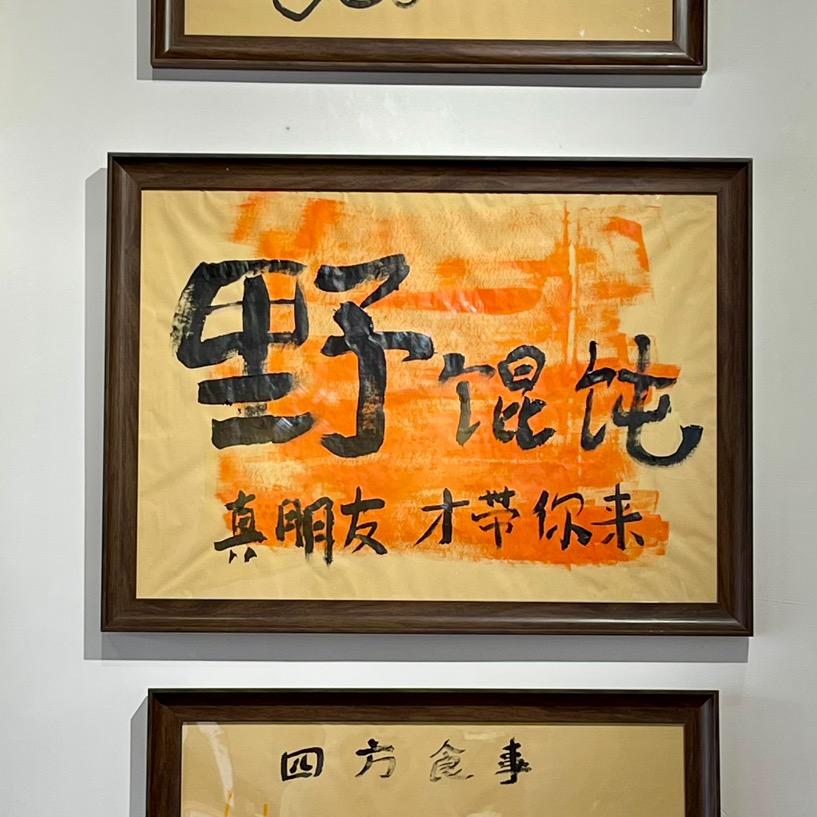 野馄饨
真朋友 才带你来
四方食事